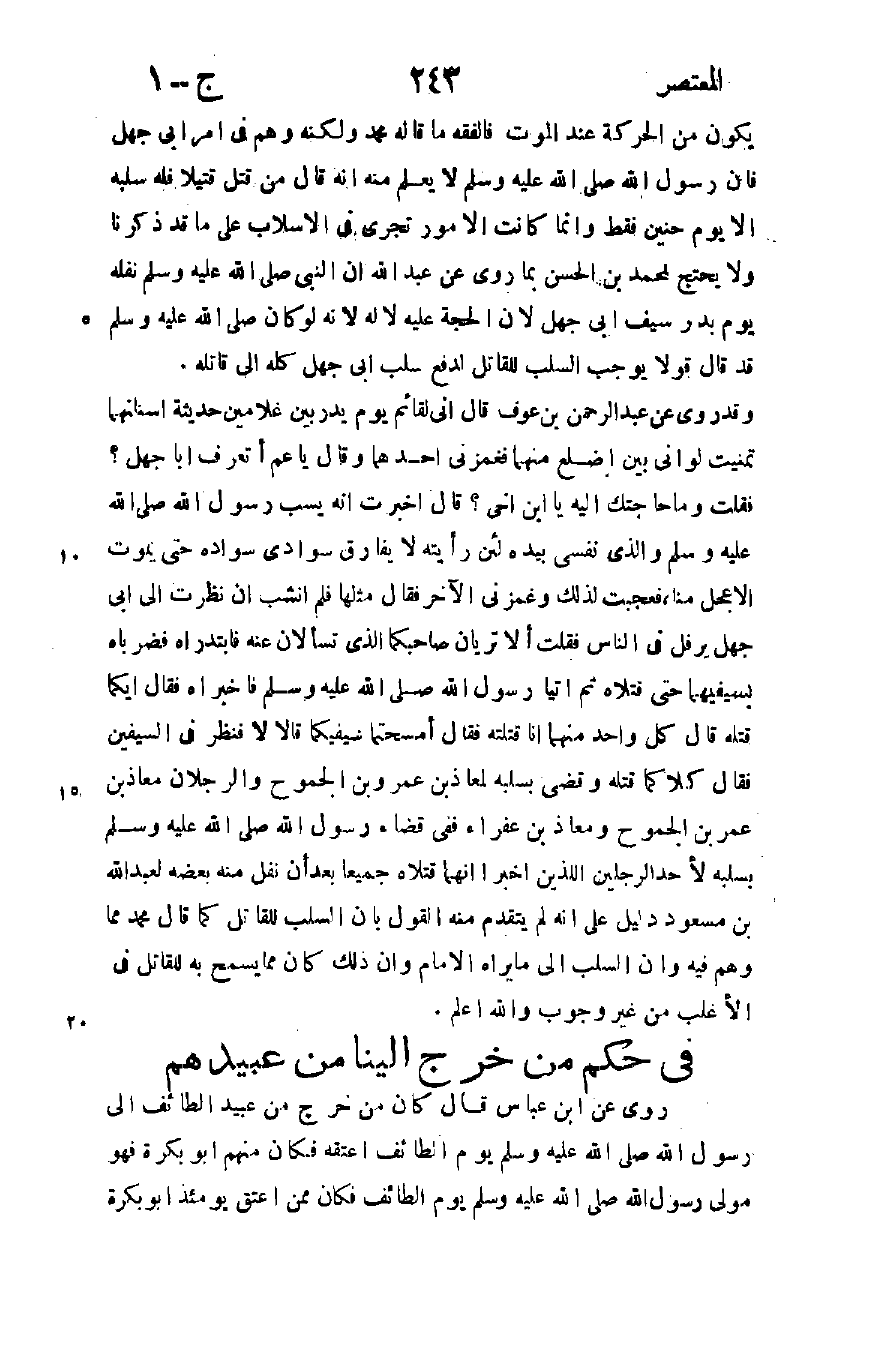 المعتصر ٢٤٣ ج -- ١
يكون من الحركة عند الموت فالفقه ما قاله محمد ولكنه وهم فى امر ابى جهل
فان رسول الله صلى الله عليه وسلم لا يعلم منه انه قال من قتل قتيلا فله سلبه
الا يوم حنين فقط وانما كانت الامور تجرى فى الاسلاب على ما قد ذكرنا
ولا يحتج لمحمد بن الحسن بما روى عن عبد الله ان النبى صلى الله عليه وسلم نفله
يوم بدر سيف ابى جهل لان الحجة عليه لا له لانه لوكان صلى الله عليه وسلم ٥
قد قال قولا يوجب السلب للقاتل لدفع سلب ابى جهل كله الى قاتله .
وقدروى عن عبدالرحمن بن عوف قال انى لقائم يوم بدر بين غلامين حديثة اسنانهما
تمنيت لو انى بين اضلع منهما فغمزنى احدهما وقال يا عم أ تعرف ابا جهل ؟
نقلت وما حاجتك اليه يا ابن اخى ؟ قال اخبرت انه يسب رسول الله صلى الله
عليه وسلم والذى نفسى بيده لئن رأيته لا يفارق سوادى سواده حتى يموت ١٠
الاعجل منا، فعجبت لذلك وغمزنى الآخر فقال مثلها فلم انشب ان نظرت الى ابى
جهل يرفل فى الناس فقلت أ لا تريان صاحبكما الذى تسألان عنه فابتدراه فضرباه
بسيفيهما حتى قتلاه ثم اتيا رسول الله صلى الله عليه وسلم فاخبراه فقال ايكما
قتله قال كل واحد منهما انا قتلته فقال أمسحتما سيفيكما قالا لا فنظر فى السيفين
نقال كلاكما قتله وقضى بسلبه لمعاذ بن عمرو بن الجموح والرجلان معاذ بن ١٥
عمر بن الجموح ومعاذ بن عفراء ففى قضاء رسول الله صلى الله عليه وسلم
بسلبه لأحد الرجلين اللذين اخبرا انهما قتلاه جميعا بعدأن نفل منه بعضه لعبدالله
بن مسعود دليل على انه لم يتقدم منه القول بان السلب للقاتل كما قال محمد مما
وهم فيه وان السلب الى مايراه الامام وان ذلك كان مما يسمح به للقاتل فى
الأغلب من غير وجوب والله اعلم . ٢٠
فى حكم من خرج الينا من عبيدهم
روى عن ابن عباس قال كان من خرج من عبيد الطائف الى
رسول الله صلى الله عليه وسلم يوم الطائف اعتقه فكان منهم ابو بكرة فهو
مولى رسول الله صلى الله عليه وسلم يوم الطائف فكان ممن اعتق يومئذ ابوبكرة